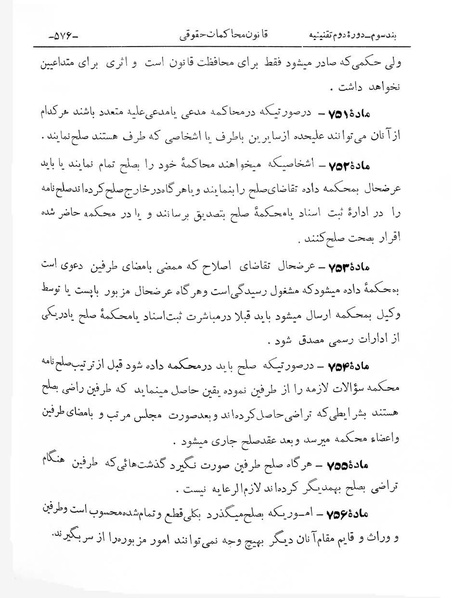 بند سوم ـ دورهٔ دوم تقنینیه قانون محاکمات حقوقی ـ۵۷۶ـ
ولی حکمی که صادر میشود فقط برای محافظت قانون است و اثری برای متداعیین
نخواهد داشت .
مادهٔ ۷۵۱ ـ درصورتیکه درمحاکمه مدعی یا مدعی علیه متعدد باشند هرکدام
از آنان می توانند علیحده از سایرین باطرف یا اشخاصی که طرف هستند صلح نمایند .
مادهٔ ۷۵۲ ـ اشخاصیکه میخواهند محاکمهٔ خود را بصلح تمام نمایند یا باید
عرضحال بمحکمه داده تقاضای صلح را بنمایند و یا هر گاه در خارج صلح کرده اند صلح نامه
را در ادارهٔ ثبت اسناد یا محکمهٔ صلح بتصدیق برسانند و یا در محکمه حاضر شده
اقرار بصحت صلح کنند .
مادهٔ ۷۵۳ ـ عرضحال تقاضای اصلاح که ممضی بامضای طرفین دعوی است
بمحکمهٔ داده میشود که مشغول رسیدگی است و هر گاه عرضحال مزبور باپست یا توسط
وکیل بمحکمه ارسال میشود باید قبلا درمباشرت ثبت اسناد یا محکمهٔ صلح یا دریکی
از ادارات رسمی مصدق شود .
مادهٔ ۷۵۴ ـ درصورتیکه صلح باید درمحکمه داده شود قبل از ترتیب صلح نامه
محکمه سؤالات لازمه را از طرفین نموده یقین حاصل مینماید که طرفین راضی بصلح
هستند بشرایطی که تراضی حاصل کرده اند و بعد صورت مجلس مرتب و بامضای طرفین
و اعضاء محکمه میرسد و بعد عقد صلح جاری میشود .
مادهٔ ۷۵۵ ـ هر گاه صلح طرفین صورت نگیرد گذشت هائی که طرفین هنگام
تراضی بصلح بهمدیگر کرده اند لازم الرعایه نیست .
مادهٔ ۷۵۶ ـ اموریکه بصلح میگذرد بکلی قطع و تمام شده محسوب است و طرفین
و وراث و قایم مقام آنان دیگر بهیچ وجه نمی توانند امور مزبوره را از سر بگیرند.